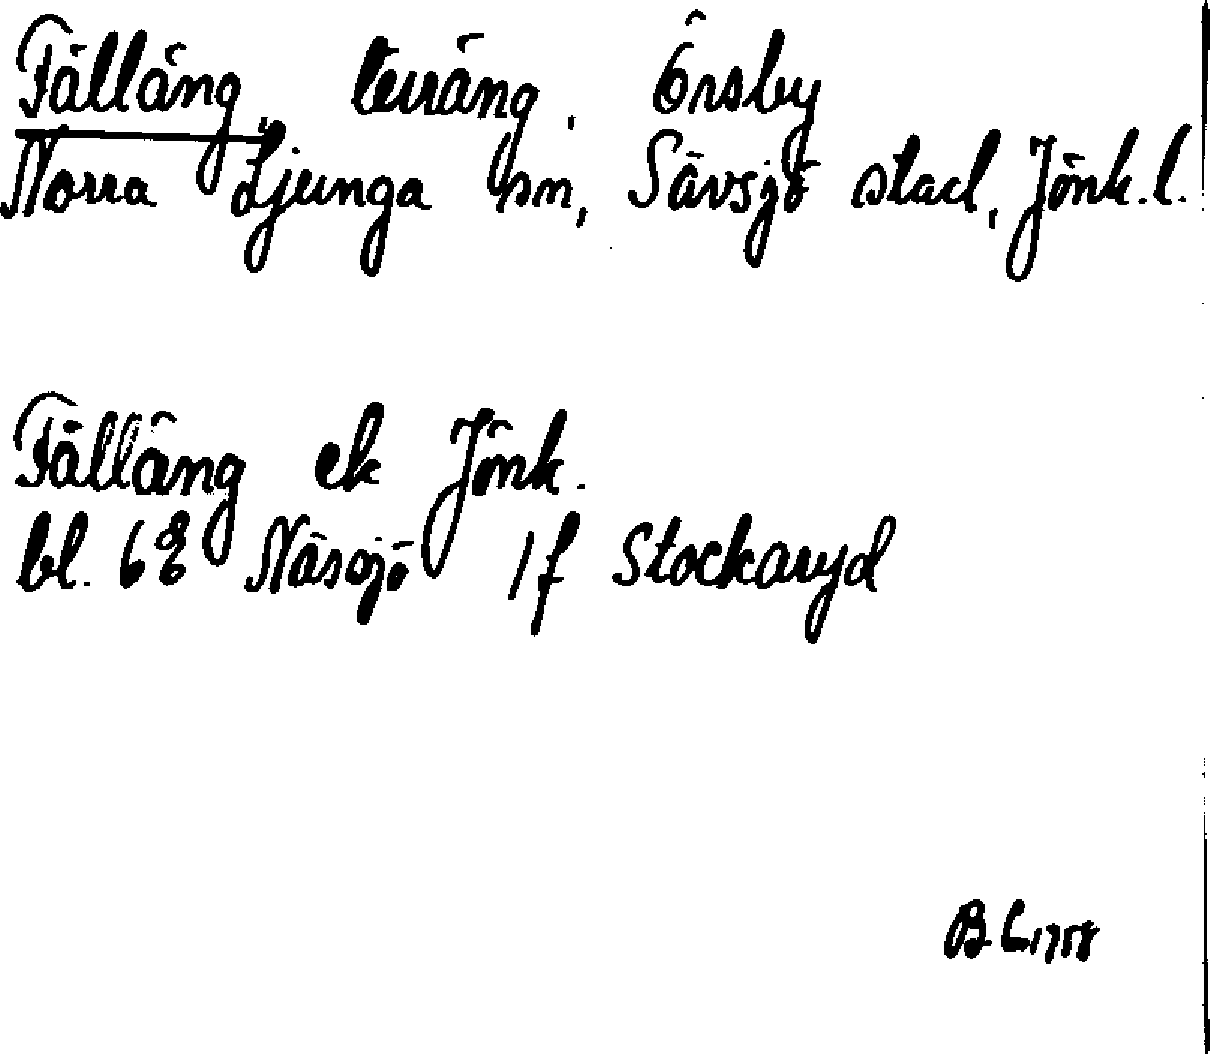 Fälläng, terräng, Örsby
Norra Ljunga sn, Sävsjö stad, Jönk.l.
Fälläng ek Jönk.
bl. 6E Nässjö 1f Stockaryd